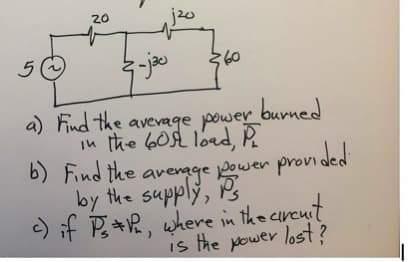 20
j20
5
-j30
60
a) Find the average power burned
in the 60Ω load, P̅L
b) Find the average power provided
by the supply, P̅s
c) if P̅s ≠ P̅L, where in the circuit
is the power lost?